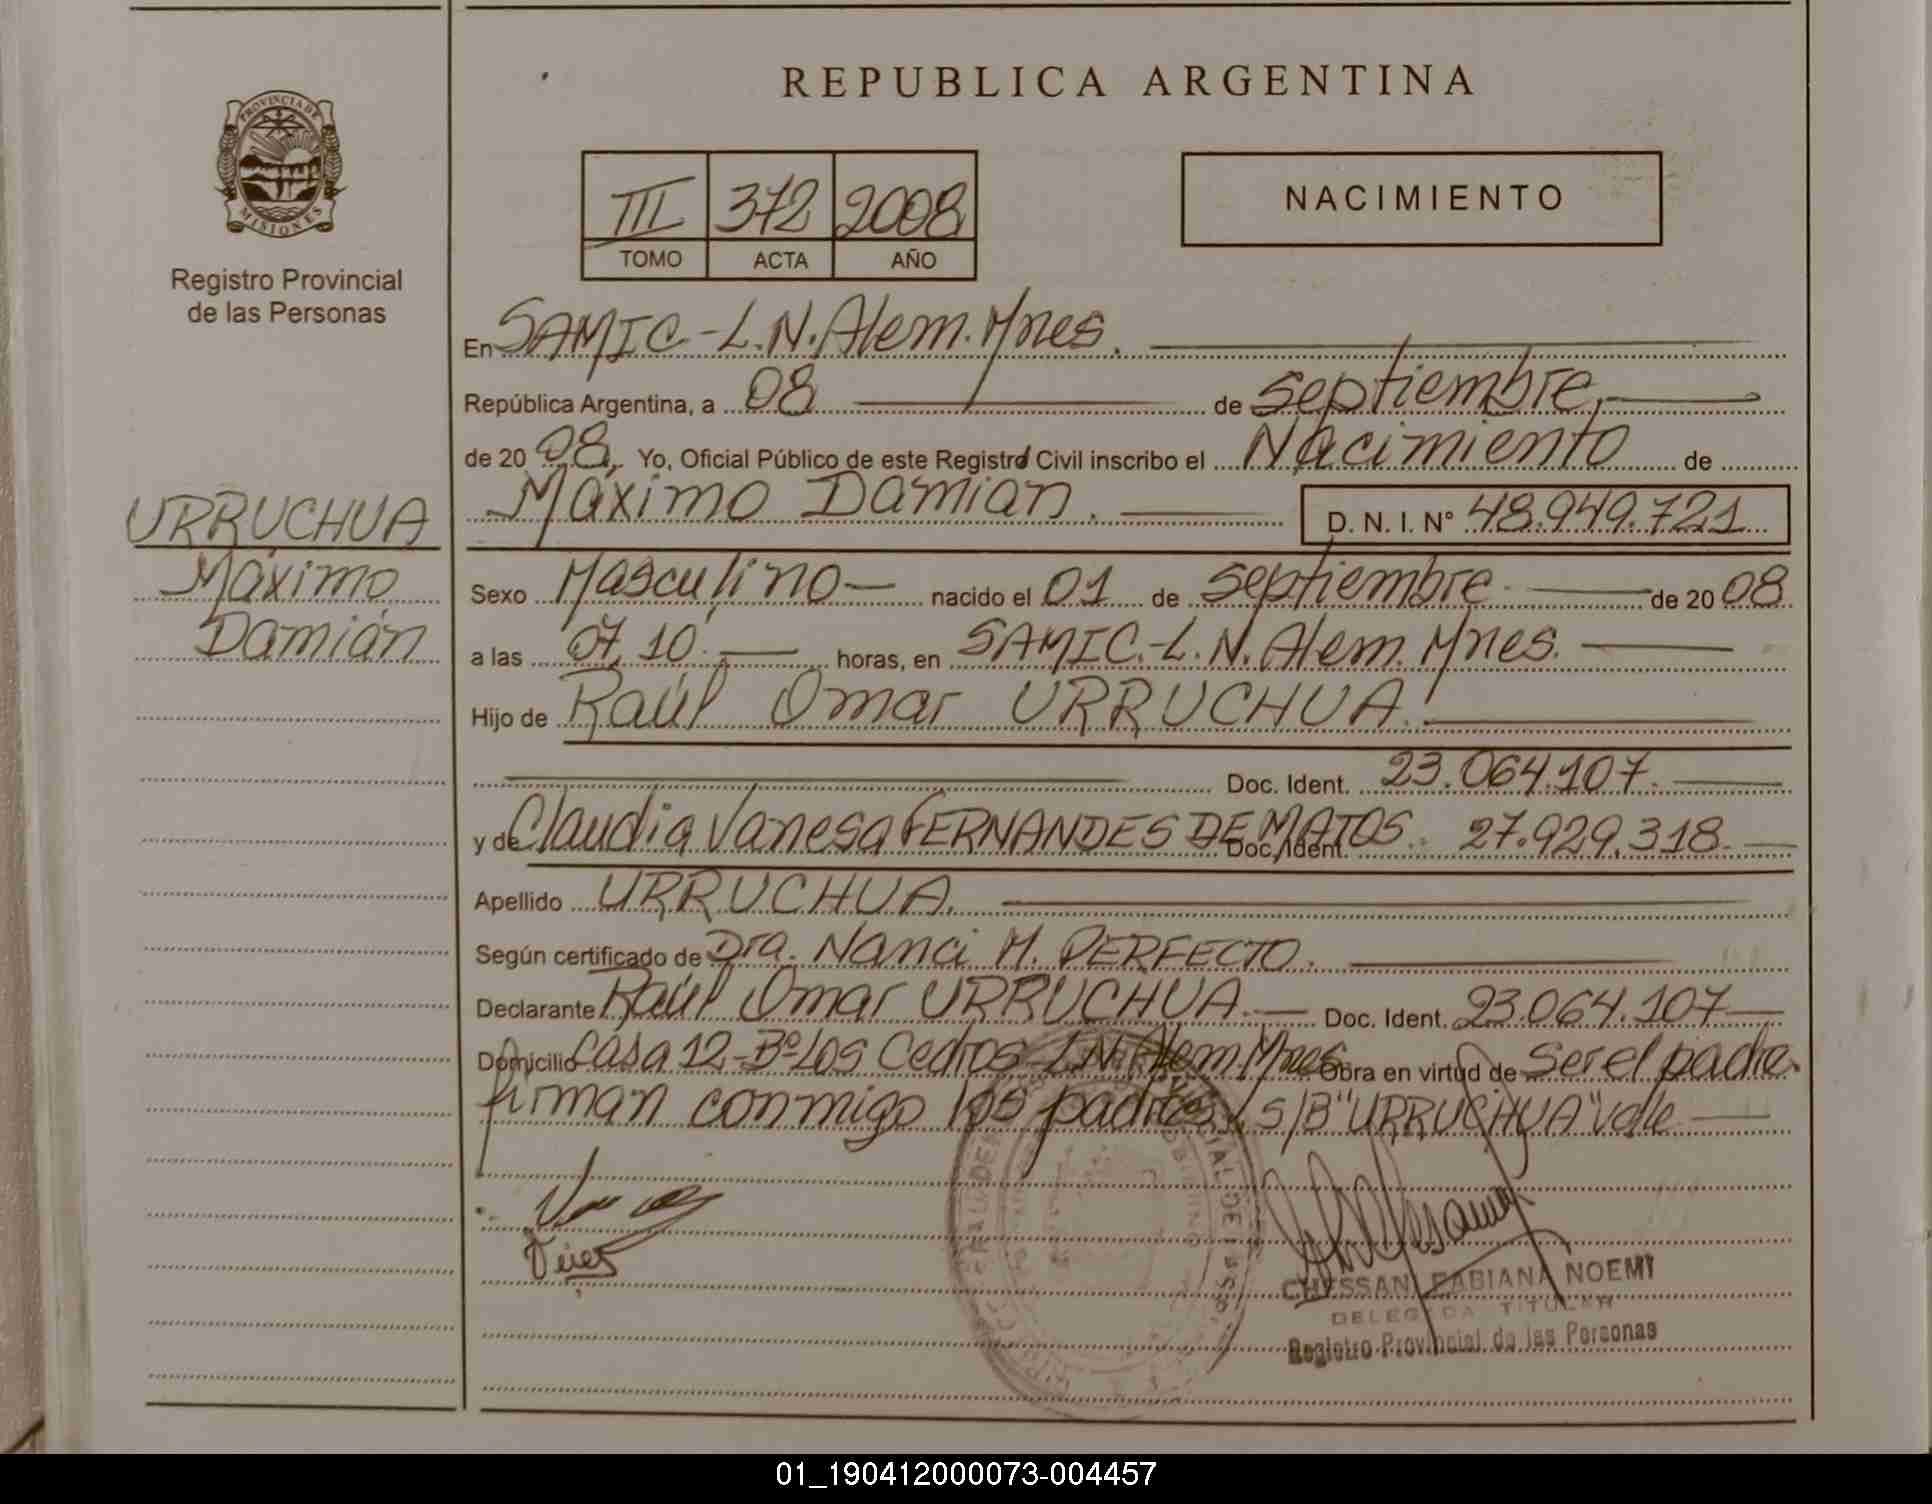 REPUBLICA ARGENTINA
PROVINCIA DE MISIONES
Registro Provincial
de las Personas
III 372 2008
TOMO ACTA AÑO
NACIMIENTO
En SAMIC.-L.N.Alem.Mnes.
República Argentina, a 08 de septiembre
de 20 08. Yo, Oficial Público de este Registro Civil inscribo el Nacimiento de
Máximo Damián. D. N. I. N° 48.949.721
URRUCHUA
Máximo
Damián
Sexo Masculino nacido el 01 de septiembre de 20 08
a las 07,10 horas, en SAMIC.-L.N.Alem.Mnes.
Hijo de Raúl Omar URRUCHUA.
Doc. Ident. 23.064.107.
y de Claudia Vanesa FERNANDES DE MATOS. Doc. Ident. 27.929.318.
Apellido URRUCHUA.
Según certificado de Dra. Nanci M. PERFECTO.
Declarante Raúl Omar URRUCHUA. Doc. Ident. 23.064.107
Domicilio Casa 12-Bº Los Cedros-L.N.Alem.Mnes. Obra en virtud de Ser el padre
firman conmigo los padres. S/B "URRUCHUA" Vale
CHESSANI FABIANA NOEMI
DELEGADA TITULAR
Registro Provincial de las Personas
01_190412000073-004457